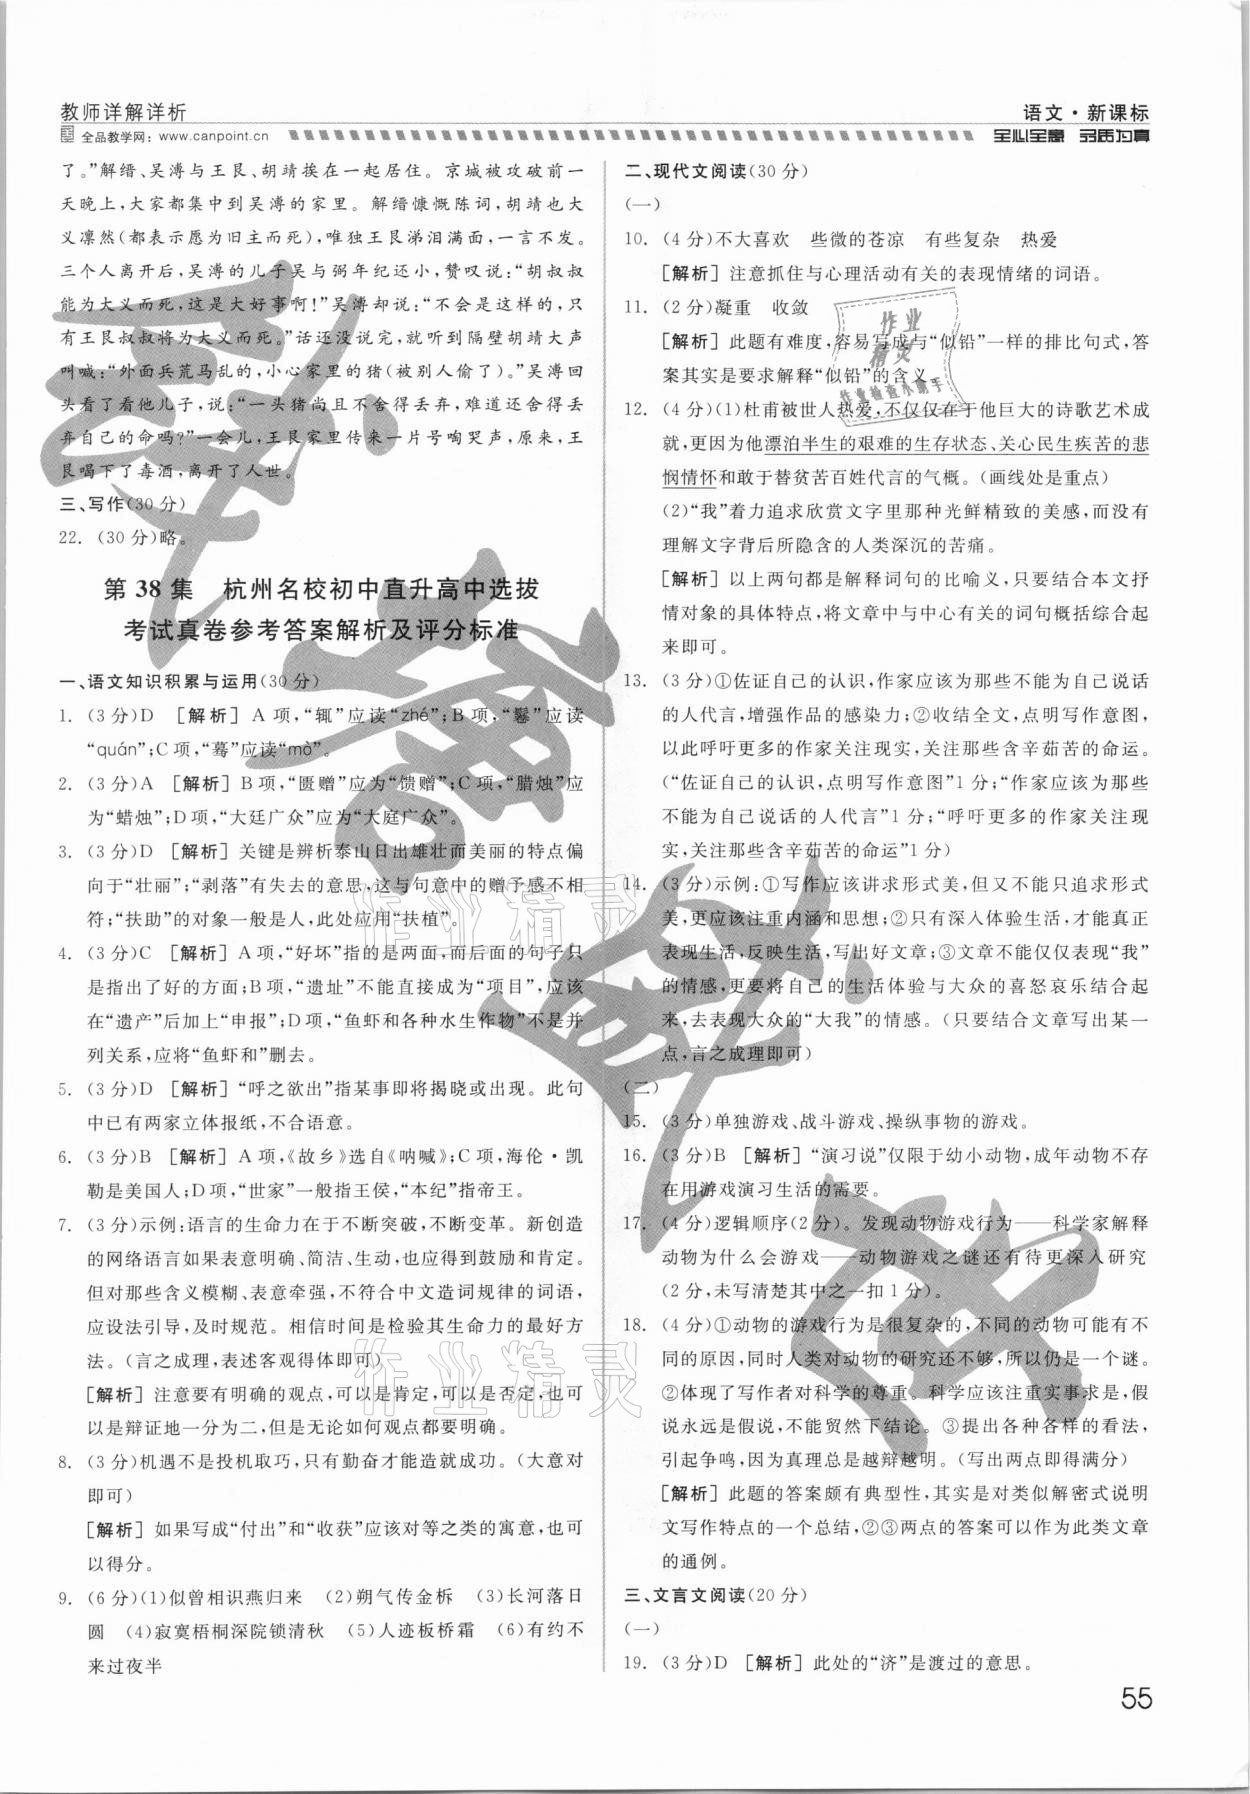 教师详解详析
语文·新课标
全品教学网：www.canpoint.cn
全心全意 品质为真
了。”解缙、吴溥与王艮、胡靖挨在一起居住。京城被攻破前一
天晚上，大家都集中到吴溥的家里。解缙慷慨陈词，胡靖也大
义凛然（都表示愿为旧主而死），唯独王艮涕泪满面，一言不发。
三个人离开后，吴溥的儿子吴与弼年纪还小，赞叹说：“胡叔叔
能为大义而死，这是大好事啊！”吴溥却说：“不会是这样的，只
有王艮叔叔将为大义而死。”话还没说完，就听到隔壁胡靖大声
叫喊：“外面兵荒马乱的，小心家里的猪（被别人偷了）。”吴溥回
头看了看他儿子，说：“一头猪尚且不舍得丢弃，难道还舍得丢
弃自己的命吗？”一会儿，王艮家里传来一片号啕哭声，原来，王
艮喝下了毒酒，离开了人世。
三、写作(30分)
22. (30分)略。
第38集 杭州名校初中直升高中选拔
考试真卷参考答案解析及评分标准
一、语文知识积累与运用(30分)
1. (3分)D [解析] A项，“辄”应读“zhé”；B项，“鬈”应读
“quán”；C项，“蓦”应读“mò”。
2. (3分)A [解析] B项，“匮赠”应为“馈赠”；C项，“腊烛”应
为“蜡烛”；D项，“大廷广众”应为“大庭广众”。
3. (3分)D [解析] 关键是辨析泰山日出雄壮而美丽的特点偏
向于“壮丽”；“剥落”有失去的意思，这与句意中的赠予感不相
符；“扶助”的对象一般是人，此处应用“扶植”。
4. (3分)C [解析] A项，“好坏”指的是两面，而后面的句子只
是指出了好的方面；B项，“遗址”不能直接成为“项目”，应该
在“遗产”后加上“申报”；D项，“鱼虾和各种水生作物”不是并
列关系，应将“鱼虾和”删去。
5. (3分)D [解析] “呼之欲出”指某事即将揭晓或出现。此句
中已有两家立体报纸，不合语意。
6. (3分)B [解析] A项，《故乡》选自《呐喊》；C项，海伦·凯
勒是美国人；D项，“世家”一般指王侯，“本纪”指帝王。
7. (3分)示例：语言的生命力在于不断突破，不断变革。新创造
的网络语言如果表意明确、简洁、生动，也应得到鼓励和肯定。
但对那些含义模糊、表意牵强，不符合中文造词规律的词语，
应设法引导，及时规范。相信时间是检验其生命力的最好方
法。（言之成理，表述客观得体即可）
[解析] 注意要有明确的观点，可以肯定，可以是否定，也可
以是辩证地一分为二，但是无论如何观点要明确。
8. (3分)机遇不是投机取巧，只有勤奋才能造就成功。（大意对
即可）
[解析] 如果写成“付出”和“收获”应该对等之类的寓意，也可
以得分。
9. (6分)(1)似曾相识燕归来 (2)朔气传金柝 (3)长河落日
圆 (4)寂寞梧桐深院锁清秋 (5)人迹板桥霜 (6)有约不
来过夜半
二、现代文阅读(30分)
(一)
10. (4分)不大喜欢 些微的苍凉 有些复杂 热爱
[解析] 注意抓住与心理活动有关的表现情绪的词语。
11. (2分)凝重 收敛
[解析] 此题有难度，容易写成与“似铅”一样的排比句式，答
案其实是要求解释“似铅”的含义。
12. (4分)(1)杜甫被世人热爱，不仅仅在于他巨大的诗歌艺术成
就，更因为他漂泊半生的艰难的生存状态、关心民生疾苦的悲
悯情怀和敢于替贫苦百姓代言的气概。（画线处是重点）
(2)“我”着力追求欣赏文字里那种光鲜精致的美感，而没有
理解文字背后所隐含的人类深沉的苦痛。
[解析] 以上两句都是解释词句的比喻义，只要结合本文抒
情对象的具体特点，将文章中与中心有关的词句概括综合起
来即可。
13. (3分)①佐证自己的认识，作家应该为那些不能为自己说话
的人代言，增强作品的感染力；②收结全文，点明写作意图，
以此呼吁更多的作家关注现实，关注那些含辛茹苦的命运。
（“佐证自己的认识，点明写作意图”1分；“作家应该为那些
不能为自己说话的人代言”1分；“呼吁更多的作家关注现
实，关注那些含辛茹苦的命运”1分）
14. (3分)示例：①写作应该讲求形式美，但又不能只追求形式
美，更应该注重内涵和思想；②只有深入体验生活，才能真正
表现生活，反映生活，写出好文章；③文章不能仅仅表现“我”
的情感，更要将自己的生活体验与大众的喜怒哀乐结合起
来，去表现大众的“大我”的情感。（只要结合文章写出某一
点，言之成理即可）
(二)
15. (3分)单独游戏、战斗游戏、操纵事物的游戏。
16. (3分)B [解析] “演习说”仅限于幼小动物，成年动物不存
在用游戏演习生活的需要。
17. (4分)逻辑顺序(2分)。发现动物游戏行为——科学家解释
动物为什么会游戏——动物游戏之谜还有待更深入研究
(2分，未写清楚其中之一扣1分)。
18. (4分)①动物的游戏行为是很复杂的，不同的动物可能有不
同的原因，同时人类对动物的研究还不够，所以仍是一个谜。
②体现了写作者对科学的尊重。科学应该注重实事求是，假
说永远是假说，不能贸然下结论。③提出各种各样的看法，
引起争鸣，因为真理总是越辩越明。（写出两点即得满分）
[解析] 此题的答案颇有典型性，其实是对类似解密式说明
文写作特点的一个总结，②③两点的答案可以作为此类文章
的通例。
三、文言文阅读(20分)
(一)
19. (3分)D [解析] 此处的“济”是渡过的意思。
作业
精灵
作业检查小助手
作业精灵
作业精灵
55